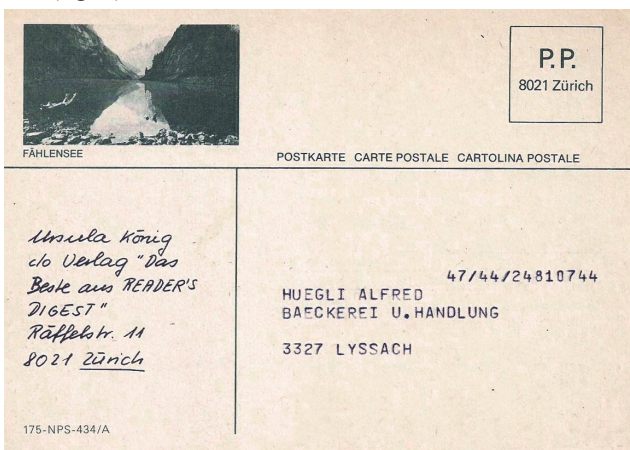 P.P.
8021 Zürich
FÄHLENSEE
POSTKARTE CARTE POSTALE CARTOLINA POSTALE
Ursula König
c/o Verlag "Das
Beste aus READER'S
DIGEST"
Räffelstr. 11
8021 Zürich
47/44/24810744
HUEGLI ALFRED
BAECKEREI U.HANDLUNG
3327 LYSSACH
175-NPS-434/A